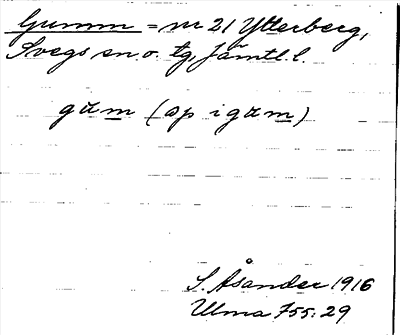 Gumm = nr 21 Ytterberg,
Svegs sn. o. tg, Jämtl. l.
gum (op i gum)
S. Åsander 1916
Ulma 755:29